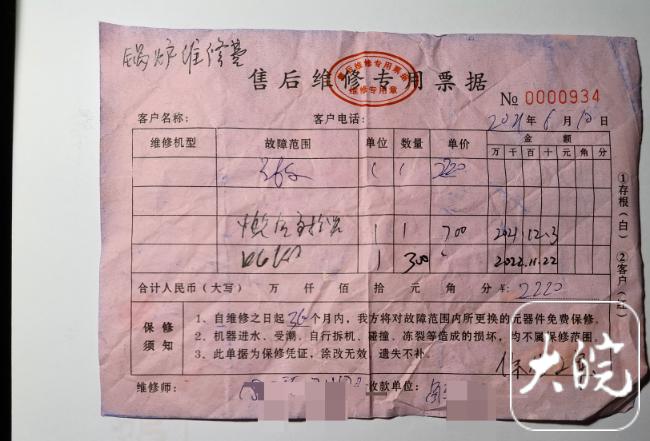 锅炉维修
售后维修专用票据
售后维修专用票据
维修专用章
No 0000934
客户名称： 客户电话： 2021年6月10日
维修机型 故障范围 单位 数量 单价 金额
万 千 百 十 元 角 分
1 1 2220
1 1 700 2021.12.3
300 2022.11.22
合计人民币（大写） 万 仟 佰 拾 元 角 分 ¥： 2220
保修须知
1、自维修之日起36个月内，我方将对故障范围内所更换的元器件免费保修。
2、机器进水、受潮、自行拆机、碰撞、冻裂等造成的损坏，均不属保修范围。
3、此单据为保修凭证，涂改无效，遗失不补。
维修师： 收款单位：
①存根（白） ②客户（红）
大皖